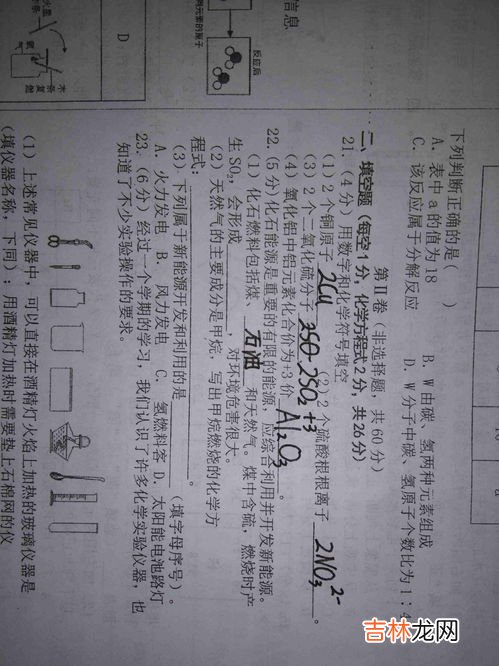 信息
反应后
D
下列判断正确的是（ ）
A. 表中 a 的值为 18
B. W 由碳、氢两种元素组成
C. 该反应属于分解反应
D. W 分子中碳、氢原子个数比为 1：
第 II 卷（非选择题，共 60 分）
二、填空题（每空 1 分，化学方程式 2 分，共 26 分）
21.（4 分）用数字和化学符号填空
（1）2 个铜原子 2Cu （2）2 个硫酸根离子 2NO₃²⁻。
（3）2 个二氧化硫分子 2SO₂
（4）氧化铝中铝元素化合价为+3 价 +3 Al₂O₃。
22.（5 分）化石能源是重要的有限的能源，应综合利用并开发新能源。
（1）化石燃料包括煤、石油 和天然气。煤中含硫，燃烧时产
生 SO₂，会形成 ，对环境危害很大。
（2）天然气的主要成分是甲烷，写出甲烷燃烧的化学方
程式：
（3）下列属于新能源开发和利用的是 （填字母序号）。
A. 火力发电 B. 风力发电 C. 氢燃料客 D. 太阳能电池路灯
23.（6 分）经过一个学期的学习，我们认识了许多化学实验仪器，也
知道了不少实验操作的要求。
（1）上述常见仪器中，可以直接在酒精灯火焰上加热的玻璃仪器是
（填仪器名称，下同）；用酒精灯加热时需要垫上石棉网的仪
吉林龙网